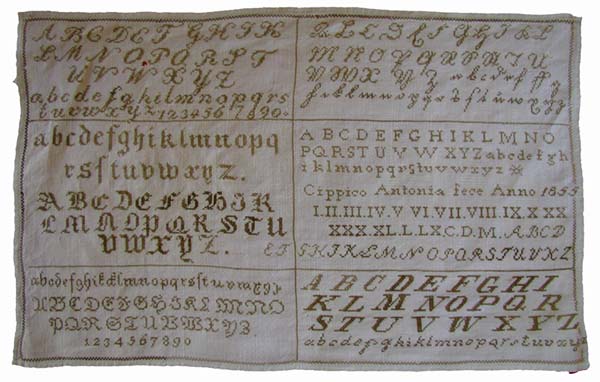 A B C D E F G H I K
L M N O P Q R S T
U V W X Y Z
a b c d e f g h i k l m n o p q r s
t u v w x y z 1 2 3 4 5 6 7 8 9 0
A B C D E F G H I K
M N O P Q R S T U
V W X Y Z a b c d e f
h i k l m n o p q r s t u w x y z
a b c d e f g h i k l m n o p q
r s ſ t u v w x y z .
A B C D E F G H I K
L M N O P Q R S T U
V W X Y Z .
E T
A B C D E F G H I K L M N O
P Q R S T U V W X Y Z a b c d e f g h
i k l m n o p q r s t u v w x y z
Cippico Antonia fece Anno 1855
I.II.III.IV.V VI.VII.VIII.IX.X XX
XXX XL.L.LX.C.D.M. A B C D
G H I K L M N O P Q R S T U V X Z
a b c d e f g h i k l m n o p q r s t u v w x y z
A B C D E F G H I K L M N O
P Q R S T U V W X Y Z
1 2 3 4 5 6 7 8 9 0
A B C D E F G H I
K L M N O P Q R
S T U V W X Y Z
a b c d e f g h i k l m n o p q r s t u v w x y z